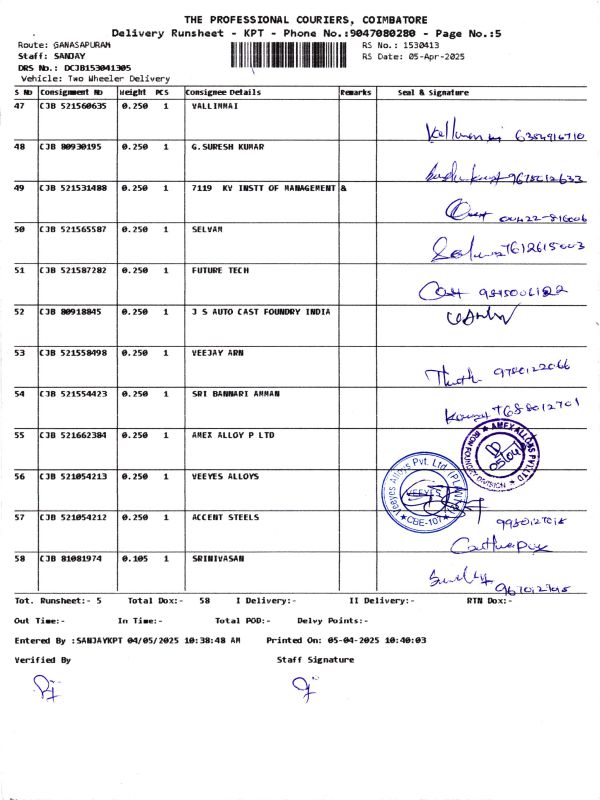 THE PROFESSIONAL COURIERS, COIMBATORE
Delivery Runsheet - KPT - Phone No.:9047080280 - Page No.:5
Route: GANASAPURAM RS No.: 1530413
Staff: SANJAY RS Date: 05-Apr-2025
DRS No.: DCJB153041305
Vehicle: Two Wheeler Delivery
S No Consignment No Weight PCS Consignee Details Remarks Seal & Signature
47 CJB 521560635 0.250 1 VALLIMMAI
6384916710
48 CJB 80930195 0.250 1 G.SURESH KUMAR
49 CJB 521531488 0.250 1 7119 KV INSTT OF MANAGEMENT &
50 CJB 521565587 0.250 1 SELVAM
51 CJB 521587282 0.250 1 FUTURE TECH
52 CJB 80918845 0.250 1 J S AUTO CAST FOUNDRY INDIA
53 CJB 521558498 0.250 1 VEEJAY ARN
9780122066
54 CJB 521554423 0.250 1 SRI BANNARI AMMAN
55 CJB 521662384 0.250 1 AMEX ALLOY P LTD
AMEX ALLOYS PVT LTD
IRON FOUNDRY DIVISION
56 CJB 521054213 0.250 1 VEEYES ALLOYS
Veeyes Alloys Pvt. Ltd.
VEEYES
CBE-107
57 CJB 521054212 0.250 1 ACCENT STEELS
58 CJB 81081974 0.105 1 SRINIVASAN
Tot. Runsheet:- 5 Total Dox:- 58 I Delivery:- II Delivery:- RTN Dox:-
Out Time:- In Time:- Total POD:- Delvy Points:-
Entered By :SANJAYKPT 04/05/2025 10:38:48 AM Printed On: 05-04-2025 10:40:03
Verified By Staff Signature